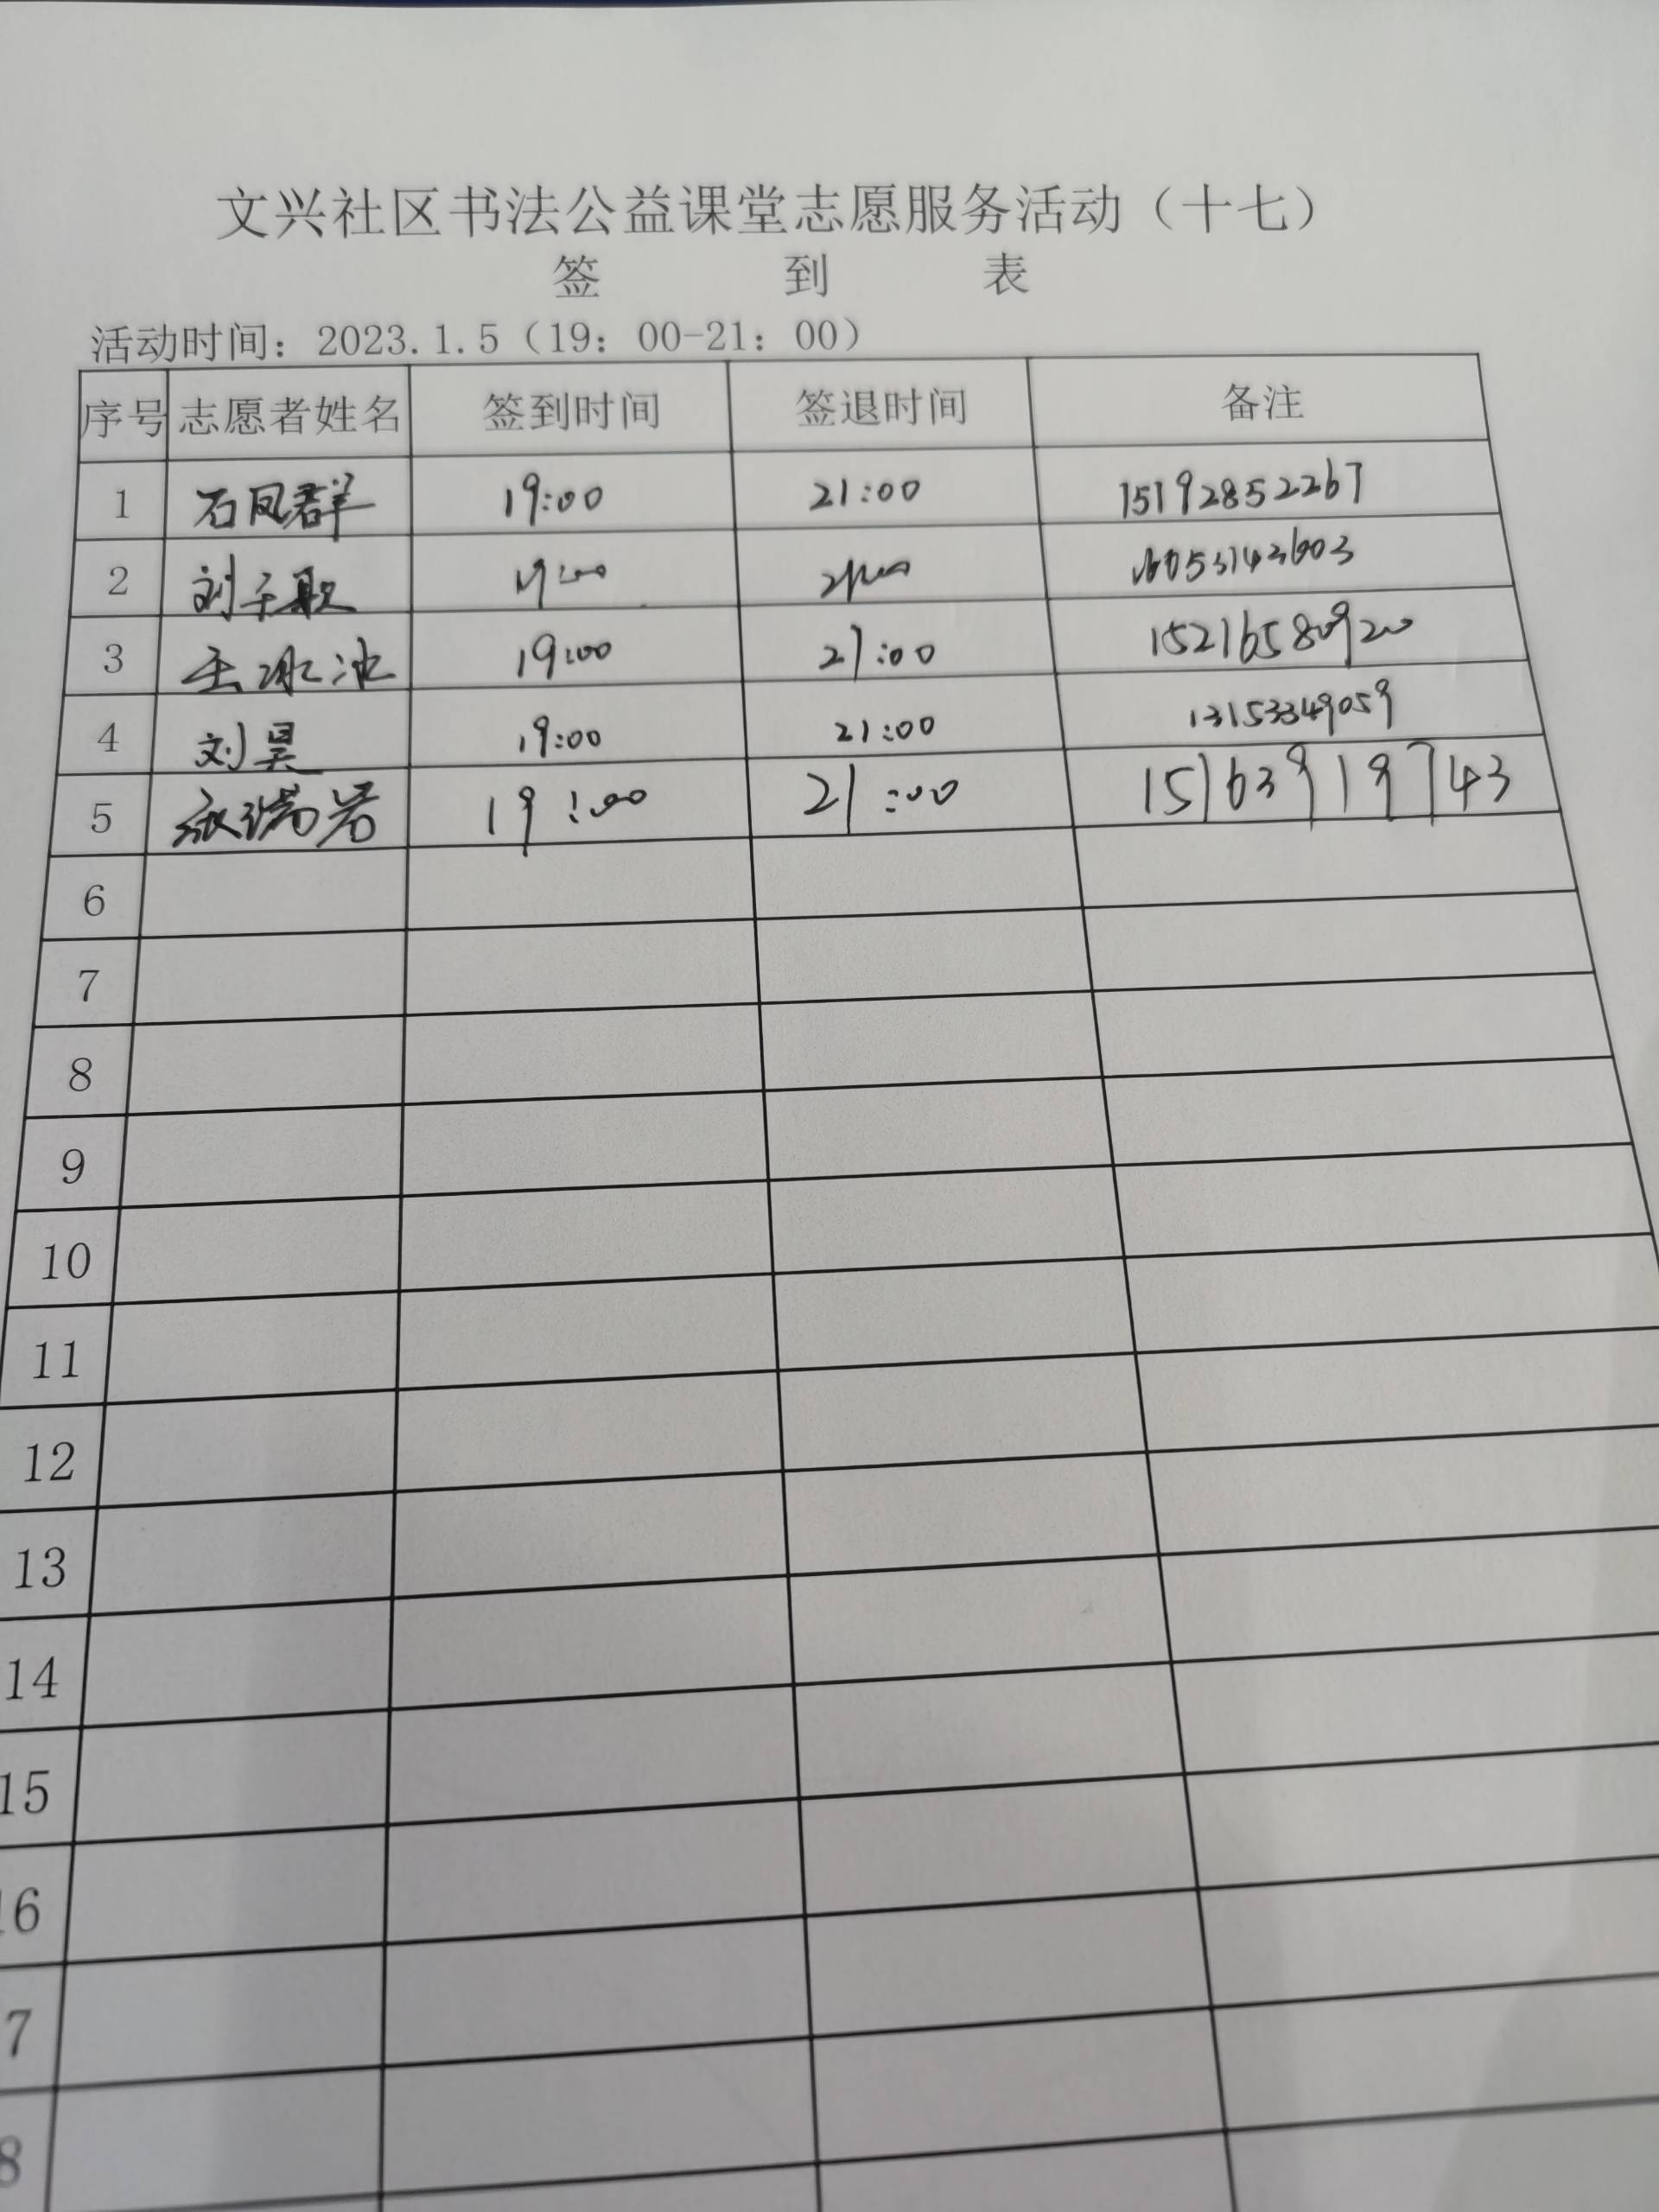 文兴社区书法公益课堂志愿服务活动（十七）
签 到 表
活动时间：2023.1.5（19：00-21：00）
序号 志愿者姓名 签到时间 签退时间 备注
1 石凤群 19:00 21:00 15192852267
2 19:00 21:00
3 王冰冰 19:00 21:00
4 刘昊 19:00 21:00 13153349059
5 19:00 21:00 15163919743
6
7
8
9
10
11
12
13
14
15
16
7
8